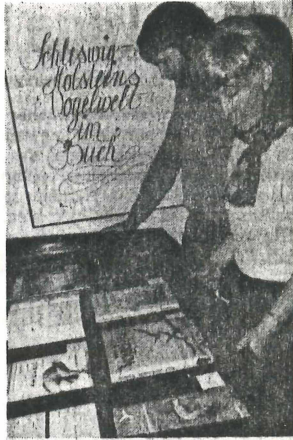 Schleswig-
Holsteens
Vogelwelt
im
Buch